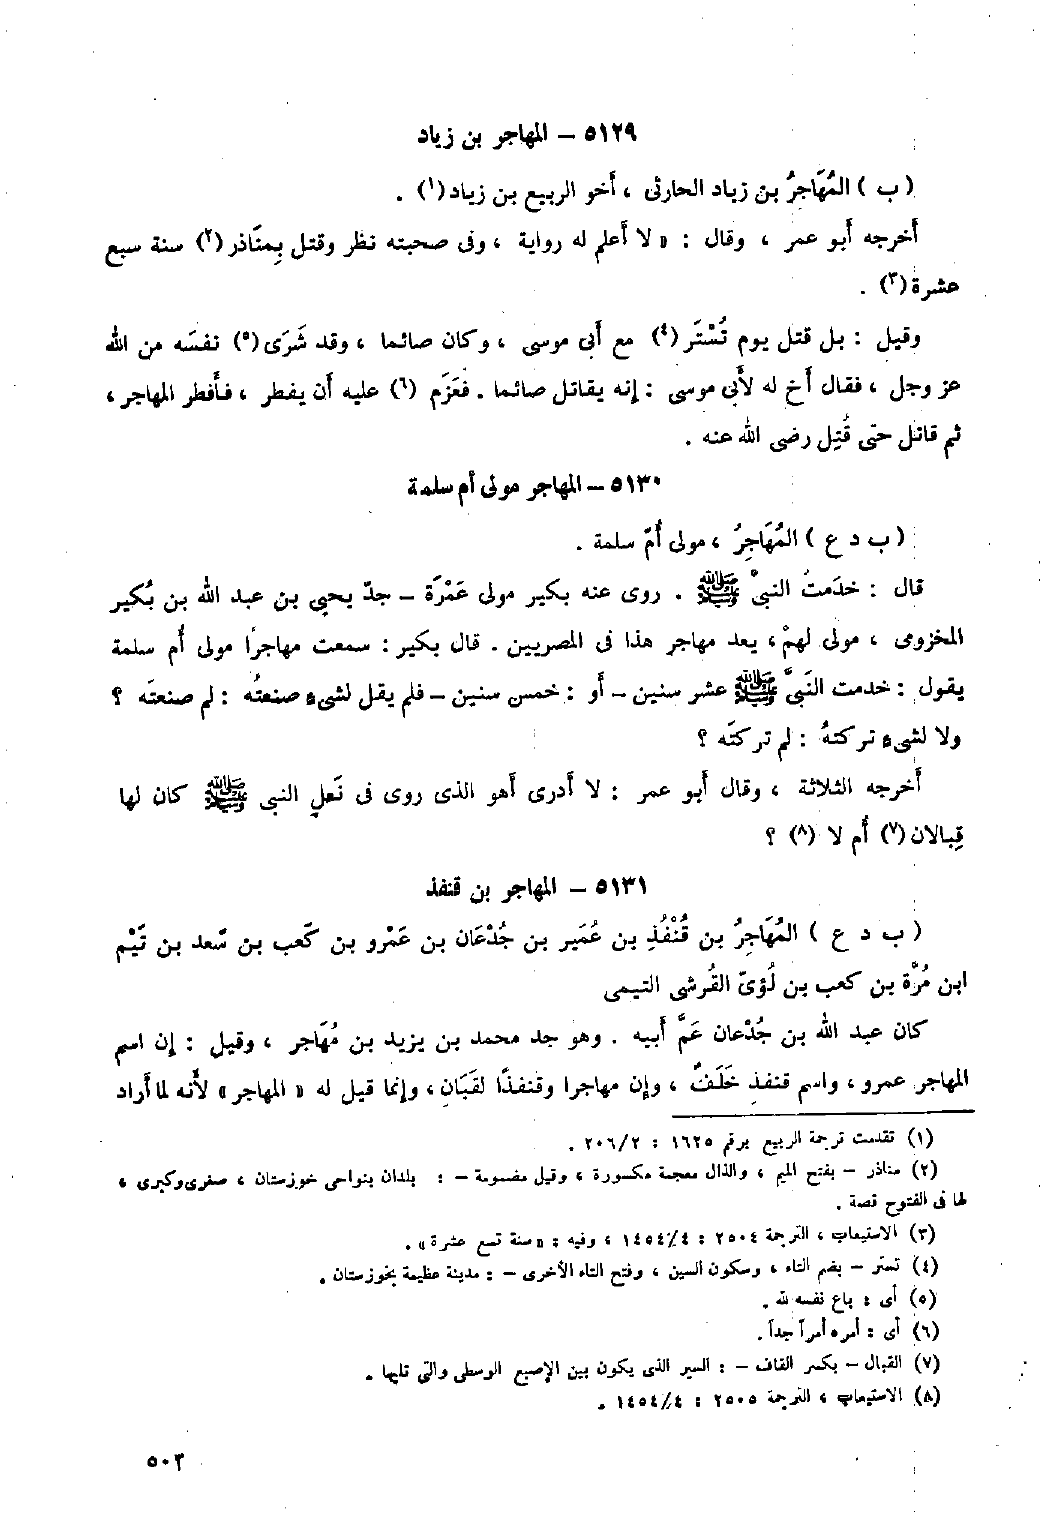 ٥١٢٩ – المهاجر بن زياد
( ب ) المُهَاجِرُ بن زياد الحارثى ، أخو الربيع بن زياد(١) .
أخرجه أبو عمر ، وقال : « لا أعلم له رواية ، وفى صحبته نظر وقتل بِمنَاذر(٢) سنة سبع
عشرة(٣) .
وقيل : بل قتل يوم تُسْتَر(٤) مع أبى موسى ، وكان صائما ، وقد شَرَى(٥) نفسَه من الله
عز وجل ، فقال أخ له لأبى موسى : إنه يقاتل صائما . فعَزَم (٦) عليه أن يفطر ، فأفطر المهاجر ،
ثم قاتل حتى قُتِل رضى الله عنه .
٥١٣٠ – المهاجر مولى أم سلمة
( ب د ع ) المُهَاجِرُ ، مولى أُمّ سلمة .
قال : خدَمتُ النبىَّ ﷺ . روى عنه بكير مولى عَمْرَة – جدّ يحيى بن عبد الله بن بُكير
المخزومى ، مولى لهمْ ، يعد مهاجر هذا فى المصريين . قال بكير : سمعت مهاجرًا مولى أم سلمة
يقول : خدمت النَبىَّ ﷺ عشر سنين – أو : خمس سنين – فلم يقل لشىء صنعتُه : لم صنعتَه ؟
ولا لشىء تركتهُ : لم تركتَه ؟
أخرجه الثلاثة ، وقال أبو عمر : لا أدرى أهو الذى روى فى نَعلِ النبى ﷺ كان لها
قِبالان(٧) أم لا (٨) ؟
٥١٣١ – المهاجر بن قنفذ
( ب د ع ) المُهَاجِرُ بن قُنْفُذِ بن عُمَير بن جُدْعَان بن عَمْرو بن كَعب بن سَعد بن تَيْم
ابن مُرَّة بن كعب بن لُؤىّ القُرشى التيمى
كان عبد الله بن جُدْعان عَمَّ أبيه . وهو جد محمد بن يزيد بن مُهَاجر ، وقيل : إن اسم
المهاجر عمرو ، واسم قنفذ خَلَفٌ ، وإن مهاجرا وقنفذًا لقَبَانِ ، وإنما قيل له « المهاجر » لأنه لما أراد
(١) تقدمت ترجمة الربيع برقم ١٦٢٥ : ٢٠٦/٢ .
(٢) مناذر – بفتح الميم ، والذال معجمة مكسورة ، وقيل مضمومة – : بلدان بنواحى خوزستان ، صغرى وكبرى ،
لها فى الفتوح قصة .
(٣) الاستيعاب ، الترجمة ٢٥٠٤ : ١٤٥٤/٤ ، وفيه : « سنة تسع عشرة » .
(٤) تستر – بضم التاء ، وسكون السين ، وفتح التاء الأخرى – : مدينة عظيمة بخوزستان .
(٥) أى : باع نفسه لله .
(٦) أى : أمره أمراً جداً .
(٧) القبال – بكسر القاف – : السير الذى يكون بين الإصبع الوسطى والتى تليها .
(٨) الاستيعاب ، الترجمة ٢٥٠٥ : ١٤٥٤/٤ .
٥٠٣